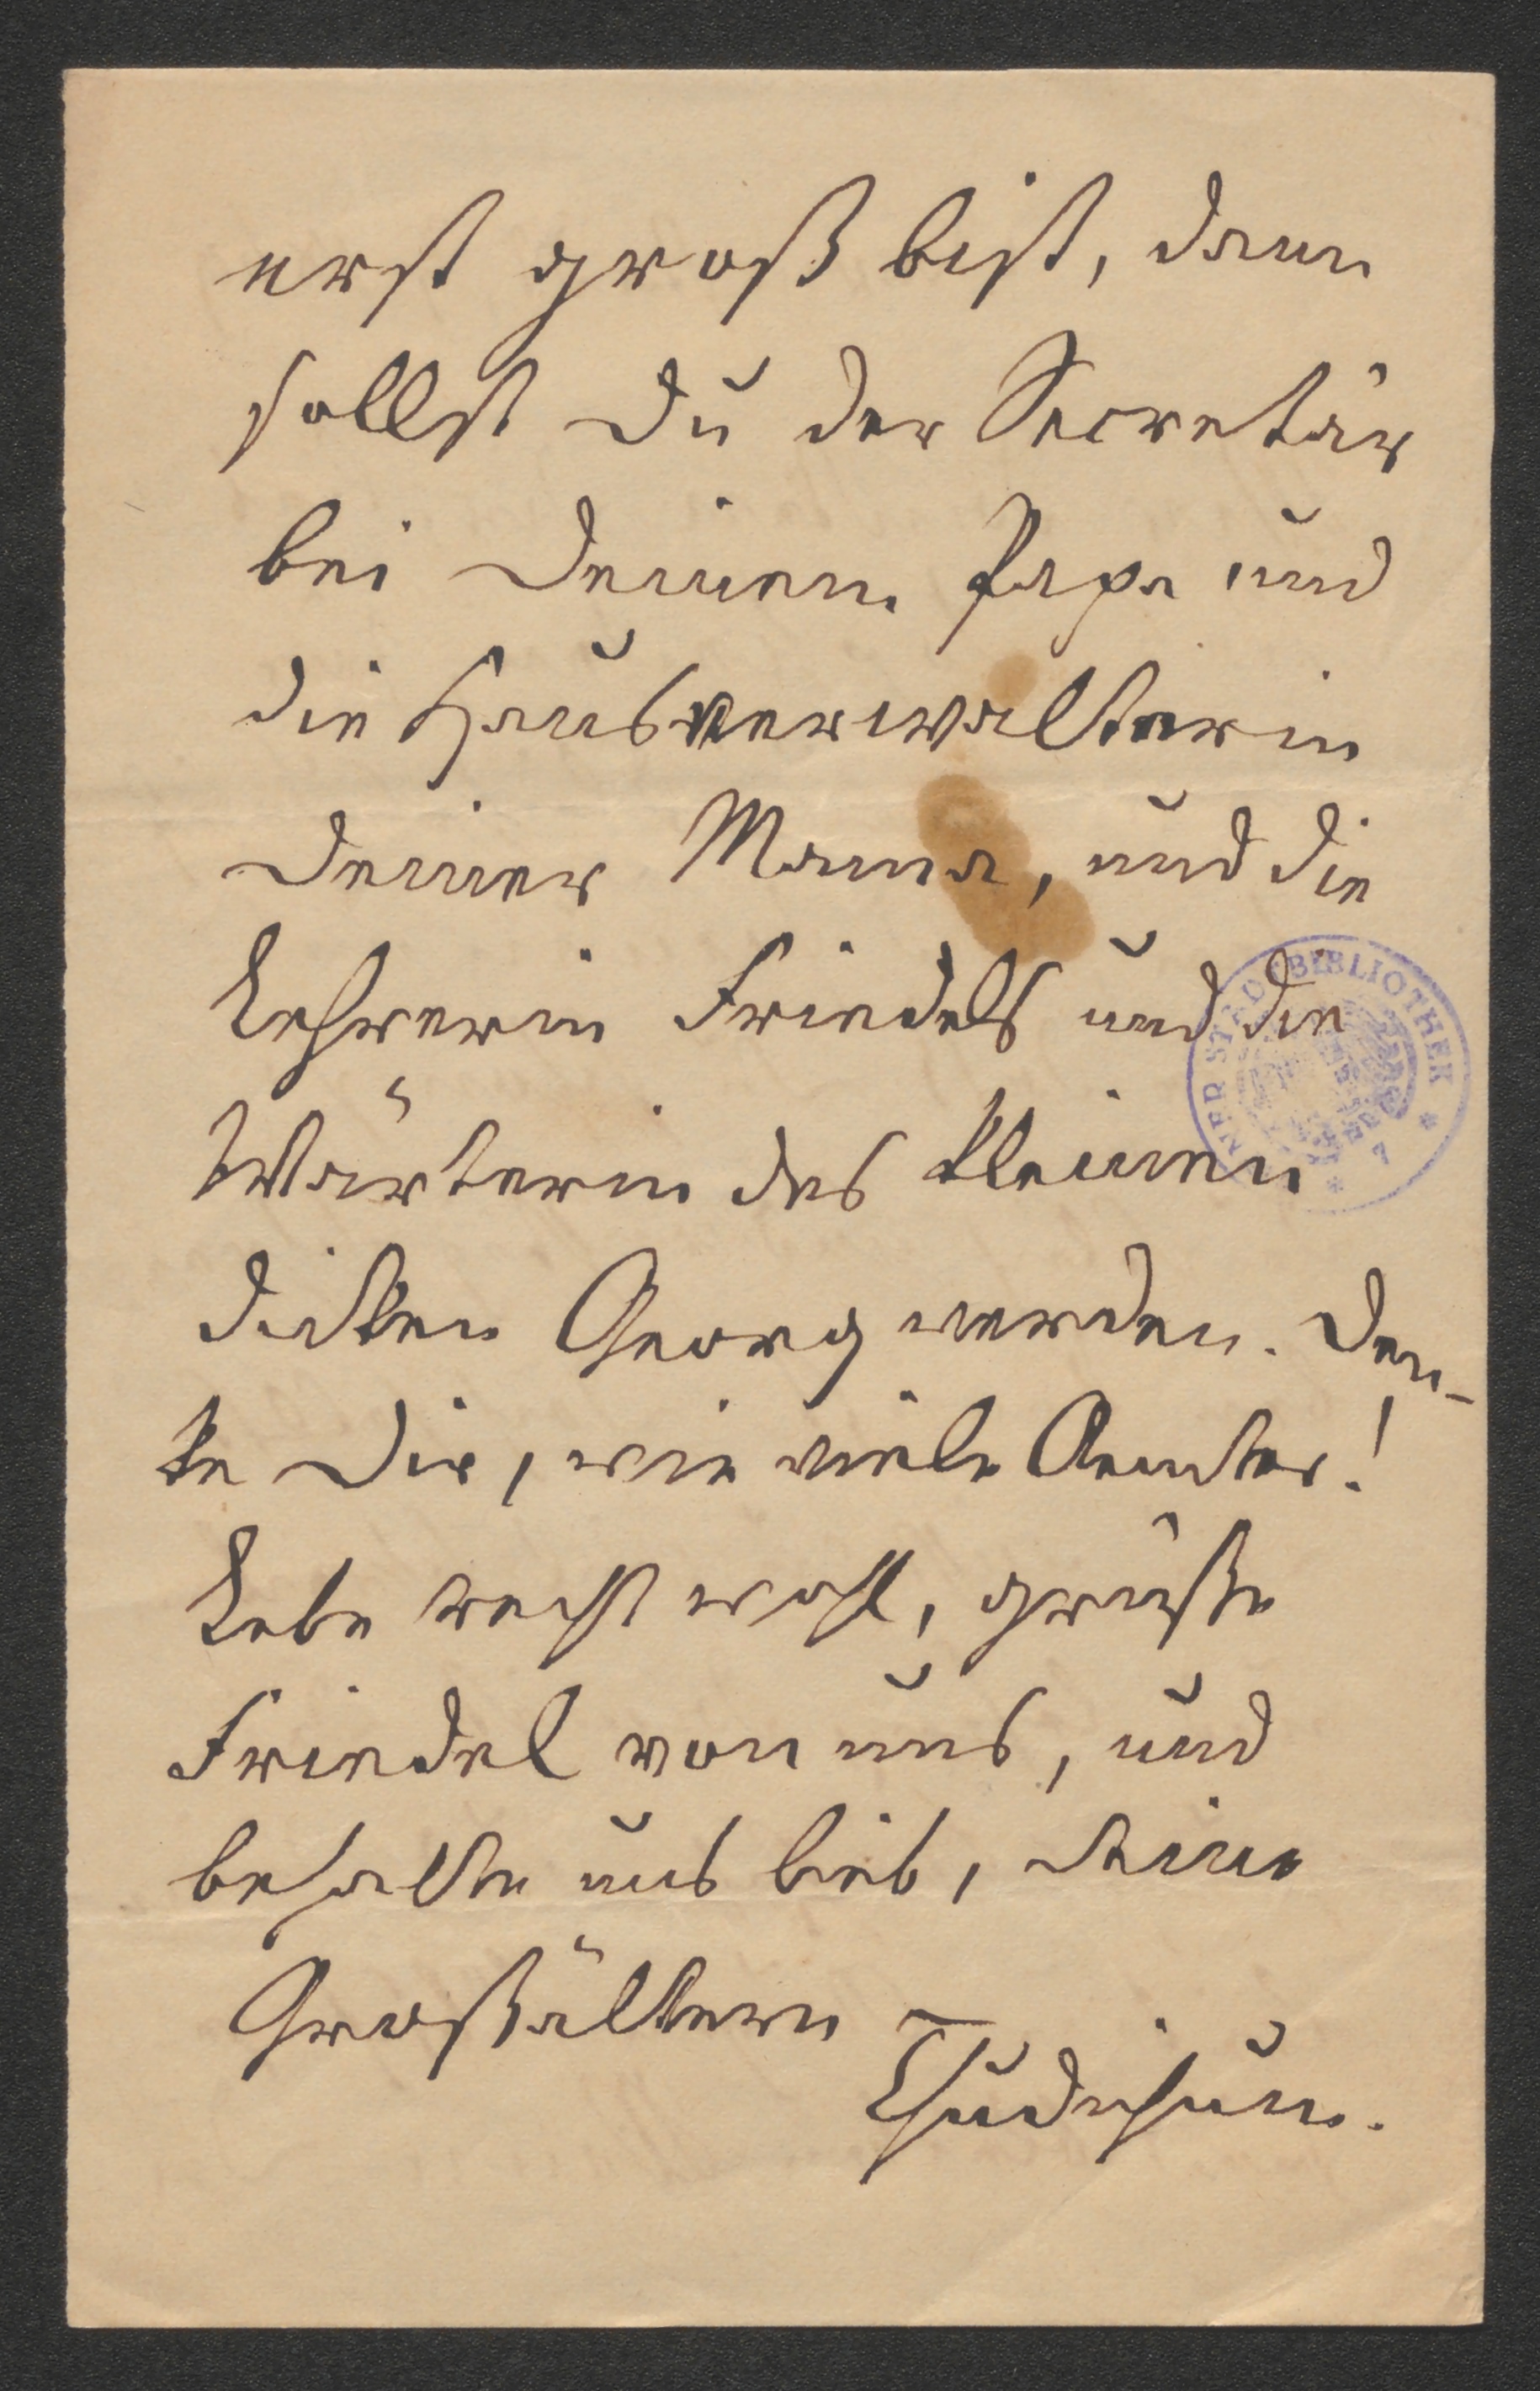 erst groß bist, dann
sollst Du der Secretär
bei Deinem Papa und
die Hausverwalterin
Deiner Mama, und die
Lehrerin Friedels und die
Wärterin des kleinen
dicken Georg werden. Den-
ke Dir, wie viele Aemter!
Lebe recht wohl, grüße
Friedel von uns, und
behalte uns lieb, Deine
Großältern
Thudichum.
STADTBIBLIOTHEK